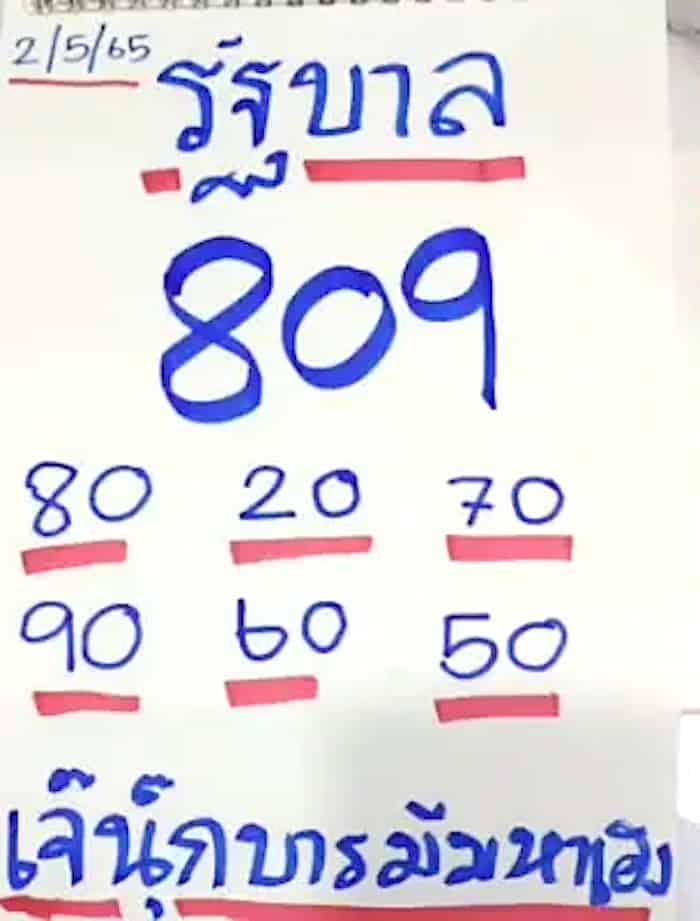 2/5/65
รัฐบาล
809
80 20 70
90 60 50
เจ๊นุ๊กบารมีมหาเฮง